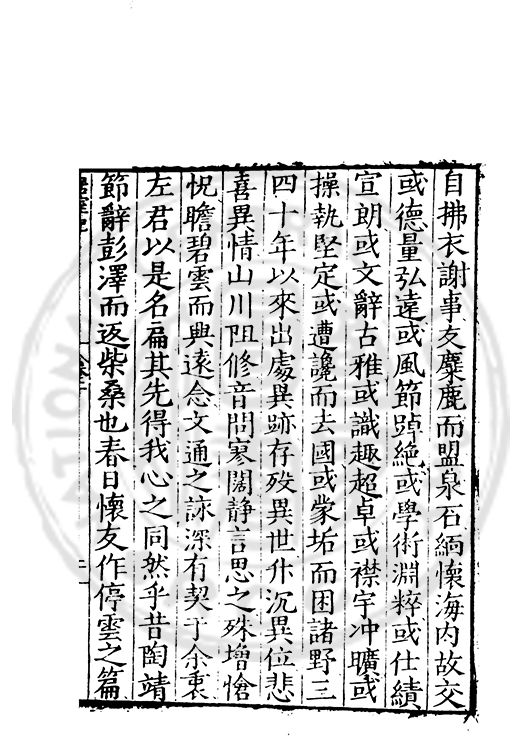 自拂衣謝事友麋鹿而盟泉石緬懷海内故交
或德量弘遠或風節踔絶或學術淵粹或仕績
宣朗或文辭古雅或識趣超卓或襟宇冲曠或
操執堅定或遭讒而去國或蒙垢而困諸野三
四十年以來出處異跡存歿異世升沉異位悲
喜異情山川阻修音問寥闊静言思之殊增愴
怳瞻碧雲而興遠念文通之詠深有契于余衷
左君以是名扁其先得我心之同然乎昔陶靖
節辭彭澤而返柴桑也春日懷友作停雲之篇